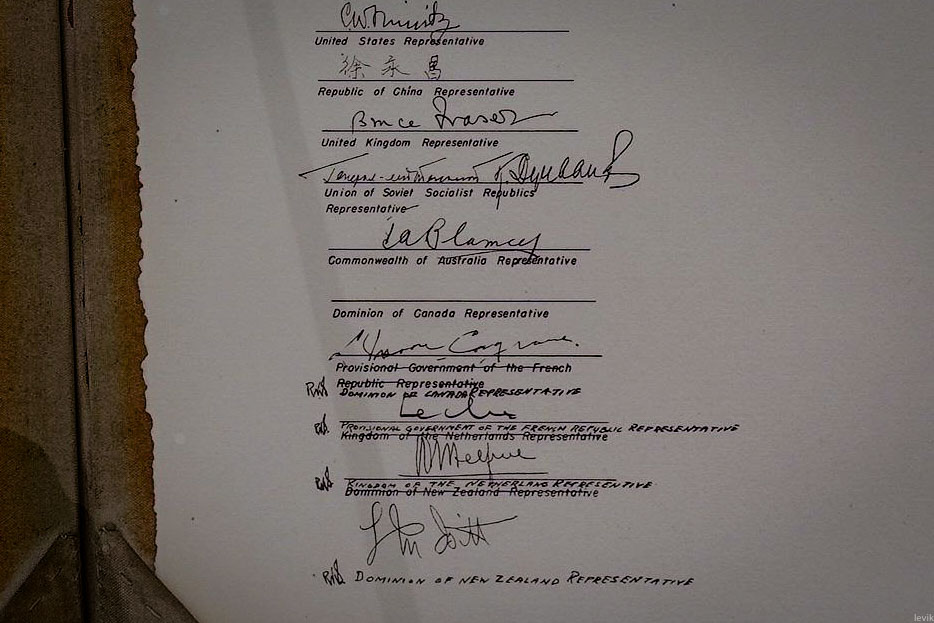 C.W. Nimitz
United States Representative
徐永昌
Republic of China Representative
Bruce Fraser
United Kingdom Representative
Union of Soviet Socialist Republics
Representative
T A Blamey
Commonwealth of Australia Representative
Dominion of Canada Representative
Moore Cosgrave.
Provisional Government of the French
Republic Representative
DOMINION OF CANADA REPRESENTATIVE
Leclerc
PROVISIONAL GOVERNMENT OF THE FRENCH REPUBLIC REPRESENTATIVE
Kingdom of the Netherlands Representative
Helfrich
KINGDOM OF THE NETHERLAND REPRESENTIVE
Dominion of New Zealand Representative
Isitt
DOMINION OF NEW ZEALAND REPRESENTATIVE
levik